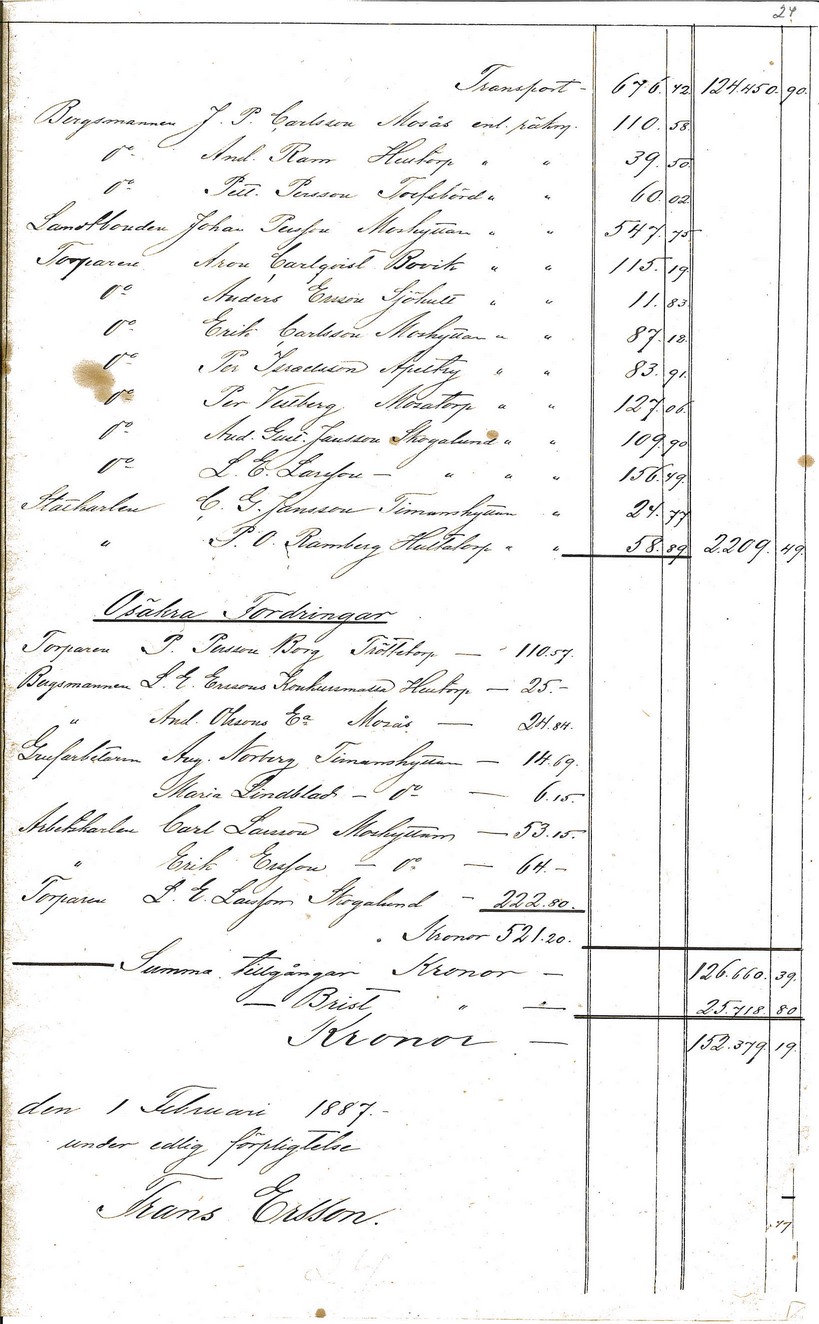 24
Transport - 676. 42 124.450. 90.
Bergsmannen J. P. Carlsson Mosås enl. räkng. 110. 58.
do And. Ram Hultorp " " 39. 50
do Pett. Persson " " 60. 02
Landtbonden Johan Persson Moshyttan " " 547. 75
Torparen Aron Carlqvist Bovik " " 115. 19.
do Anders Ersson Sjöhult " " 11. 83.
do Erik Carlsson Moshyttan " " 87. 18.
do Per Israelsson " " 83. 91.
do Per Vestberg Mosatorp " " 127. 06.
do And. Gust. Jansson Skogalund " " 109. 90
do L. E. Larsson - " " " 156. 49.
Statkarlen C. G. Jansson Timanshyttan " 24. 77
" P. O. Ramberg Hultatorp " " 58. 89 2.209. 49.
Osäkra Fordringar
Torparen P. Persson Borg Tröttetorp — 110.57.
Bergsmannen L. E. Erssons Konkursmassa Hultorp — 25.-
" And. Olsons Ea Mosås — 24.84.
Grufarbetaren Aug. Norberg Timanshyttan — 14.69.
Maria Lindblad - do — 6.15.
Arbetskarlen Carl Larsson Moshyttan — 53.15.
" Erik Ersson - do — 64.-
Torparen L. E. Larsson Skogalund - 222.80.
Kronor 521.20.
Summa tillgångar Kronor — 126.660. 39.
— Brist " — 25.718. 80
Kronor — 152.379. 19.
den 1 Februari 1887.-
under edlig förpligtelse
Frans Ersson.